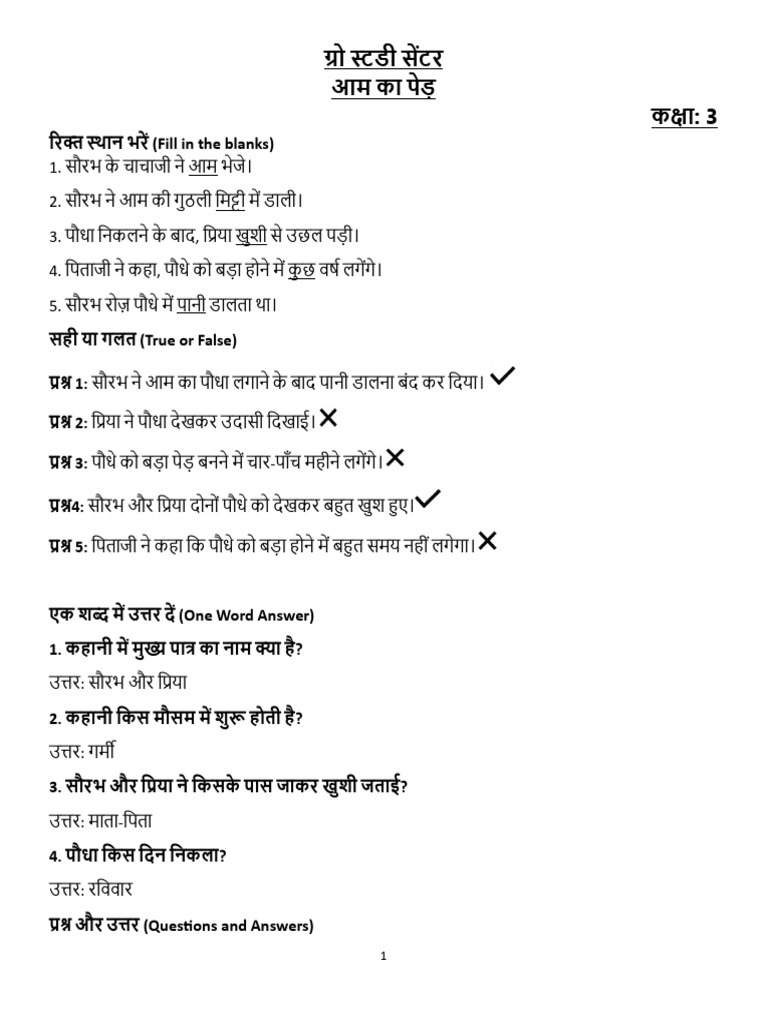 ग्रो स्टडी सेंटर
आम का पेड़
कक्षा: 3
रिक्त स्थान भरें (Fill in the blanks)
1. सौरभ के चाचाजी ने आम भेजे।
2. सौरभ ने आम की गुठली मिट्टी में डाली।
3. पौधा निकलने के बाद, प्रिया खुशी से उछल पड़ी।
4. पिताजी ने कहा, पौधे को बड़ा होने में कुछ वर्ष लगेंगे।
5. सौरभ रोज़ पौधे में पानी डालता था।
सही या गलत (True or False)
प्रश्न 1: सौरभ ने आम का पौधा लगाने के बाद पानी डालना बंद कर दिया। ✓
प्रश्न 2: प्रिया ने पौधा देखकर उदासी दिखाई।✕
प्रश्न 3: पौधे को बड़ा पेड़ बनने में चार-पाँच महीने लगेंगे।✕
प्रश्न4: सौरभ और प्रिया दोनों पौधे को देखकर बहुत खुश हुए।✓
प्रश्न 5: पिताजी ने कहा कि पौधे को बड़ा होने में बहुत समय नहीं लगेगा।✕
एक शब्द में उत्तर दें (One Word Answer)
1. कहानी में मुख्य पात्र का नाम क्या है?
उत्तर: सौरभ और प्रिया
2. कहानी किस मौसम में शुरू होती है?
उत्तर: गर्मी
3. सौरभ और प्रिया ने किसके पास जाकर खुशी जताई?
उत्तर: माता-पिता
4. पौधा किस दिन निकला?
उत्तर: रविवार
प्रश्न और उत्तर (Questions and Answers)
1